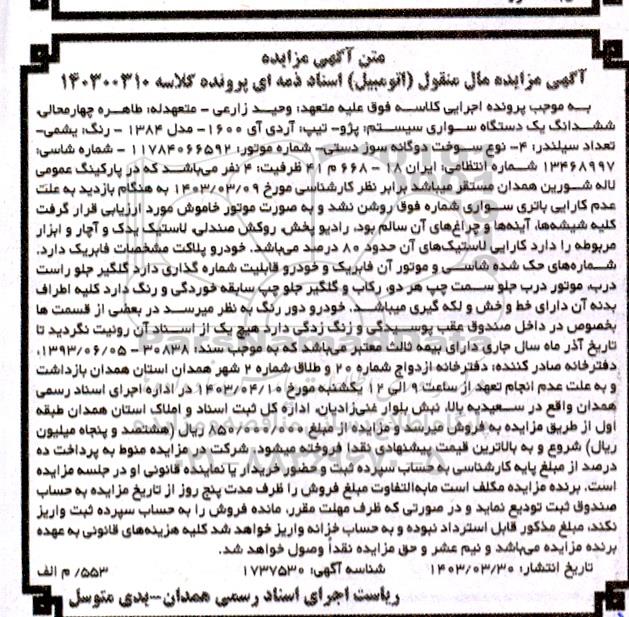 متن آگهی مزایده
آگهی مزایده مال منقول (اتومبیل) اسناد ذمه ای پرونده کلاسه ۱۴۰۳۰۰۳۱۰
به موجب پرونده اجرایی کلاسه فوق علیه متعهد: وحید زارعی - متعهدله: طاهره چهارمحالی،
ششدانگ یک دستگاه سواری سیستم: پژو- تیپ: آردی آی ۱۶۰۰- مدل ۱۳۸۴ - رنگ: یشمی-
تعداد سیلندر: ۴- نوع سوخت دوگانه سوز دستی- شماره موتور: ۱۱۷۸۴۰۶۶۵۹۲ - شماره شاسی:
۱۳۴۶۸۹۹۷ شماره انتظامی: ایران ۱۸ - ۶۶۸ م ۴۱ ظرفیت: ۴ نفر می‌باشد که در پارکینگ عمومی
لاله شورین همدان مستقر میباشد برابر نظر کارشناسی مورخ ۱۴۰۳/۰۳/۰۹ به هنگام بازدید به علت
عدم کارایی باتری سواری شماره فوق روشن نشد و به صورت موتور خاموش مورد ارزیابی قرار گرفت
کلیه شیشه‌ها، آینه‌ها و چراغ‌های آن سالم بود، رادیو پخش، روکش صندلی، لاستیک یدک و آچار و ابزار
مربوطه را دارد کارایی لاستیک‌های آن حدود ۸۰ درصد می‌باشد. خودرو پلاکت مشخصات فابریک دارد.
شماره‌های حک شده شاسی و موتور آن فابریک و خودرو قابلیت شماره گذاری دارد گلگیر جلو راست
درب، موتور درب جلو سمت چپ هر دو، رکاب و گلگیر جلو چپ سابقه خوردگی و رنگ دارد کلیه اطراف
بدنه آن دارای خط و خش و لکه گیری میباشد. خودرو دور رنگ به نظر میرسد در بعضی از قسمت ها
بخصوص در داخل صندوق عقب پوسیدگی و زنگ زدگی دارد هیچ یک از اسناد آن رونیت نگردید تا
تاریخ آذر ماه سال جاری دارای بیمه ثالث معتبر می‌باشد که به موجب سند: ۳۰۸۳۸ - ۱۳۹۳/۰۶/۰۵،
دفترخانه صادر کننده: دفترخانه ازدواج شماره ۲۰ و طلاق شماره ۲ شهر همدان استان همدان بازداشت
و به علت عدم انجام تعهد از ساعت ۹ الی ۱۲ یکشنبه مورخ ۱۴۰۳/۰۴/۱۰ در اداره اجرای اسناد رسمی
همدان واقع در سعیدیه بالا، نبش بلوار غنی‌زادیان، اداره کل ثبت اسناد و املاک استان همدان طبقه
اول از طریق مزایده به فروش میرسد و مزایده از مبلغ ۸۵۰/۰۰۰/۰۰۰ ریال (هشتصد و پنجاه میلیون
ریال) شروع و به بالاترین قیمت پیشنهادی نقدا فروخته میشود. شرکت در مزایده منوط به پرداخت ده
درصد از مبلغ پایه کارشناسی به حساب سپرده ثبت و حضور خریدار یا نماینده قانونی او در جلسه مزایده
است. برنده مزایده مکلف است مابه‌التفاوت مبلغ فروش را ظرف مدت پنج روز از تاریخ مزایده به حساب
صندوق ثبت تودیع نماید و در صورتی که ظرف مهلت مقرر، مانده فروش را به حساب سپرده ثبت واریز
نکند، مبلغ مذکور قابل استرداد نبوده و به حساب خزانه واریز خواهد شد کلیه هزینه‌های قانونی به عهده
برنده مزایده می‌باشد و نیم عشر و حق مزایده نقداً وصول خواهد شد.
تاریخ انتشار: ۱۴۰۳/۰۳/۳۰ شناسه آگهی: ۱۷۳۷۵۳۰ ۵۵۳/ م الف
ریاست اجرای اسناد رسمی همدان--یدی متوسل